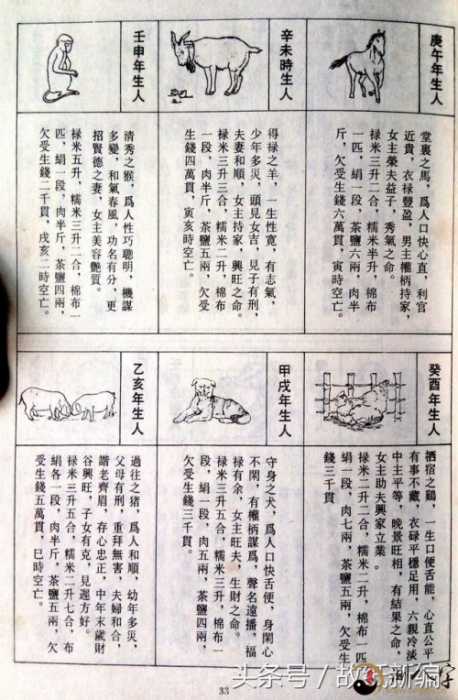 庚午年生人
堂裏之馬，爲人口快心直，利官
近貴，衣祿豐盈，男主權柄持家，
女主榮夫益子，秀氣之命。
祿米三升二合，糯米半升，棉布
一匹，絹一段，茶鹽六兩，肉半
斤，欠受生錢六萬貫，寅時空亡。
辛未時生人
得祿之羊，一生性寬，有志氣，
少年多災，頭見女吉，見子有刑，
夫妻和順，女主持家，興旺之命。
祿米三升三合，糯米二升，棉布
一段，肉半斤，茶鹽五兩，欠受
生錢四萬貫，寅亥時空亡。
壬申年生人
清秀之猴，爲人性巧聰明，機謀
多變，和氣春風，功名有分，更
招賢德之妻，女主美容艷質。
祿米五升，糯米三升二合，棉布一
匹，絹一段，肉半斤，茶鹽四兩，
欠受生錢二千貫，戌亥二時空亡。
癸酉年生人
栖宿之鷄，一生口便舌能，心直公平，
有事不藏，衣碌平穩足用，六親冷淡，
中主平等，晚景旺相，有結果之命，
女主助夫興家立業。
祿米二升二合，糯米二升，棉布一匹，
絹一段，肉七兩，茶鹽五兩，欠受生
錢三千貫
甲戌年生人
守身之犬，爲人口快舌便，身閑心
不閑，有權柄謀爲，聲名遠播，福
祿有余，女主旺夫，生財之命。
祿米三升五合，糯米三升，棉布一
段，絹一段，肉五兩，茶鹽四兩，
欠受生錢三千貫。
乙亥年生人
過往之猪，爲人和順，幼年多災，
父母有刑，重拜無害，夫婦和合，
諧老齊眉，存心忠正，中年末歲財
谷興旺，子女有克，見遲方好。
祿米三升五合，糯米二升七合，布
絹各一段，肉半斤，茶鹽五兩，欠
受生錢五萬貫，巳時空亡。
33
头条号／故纸新编